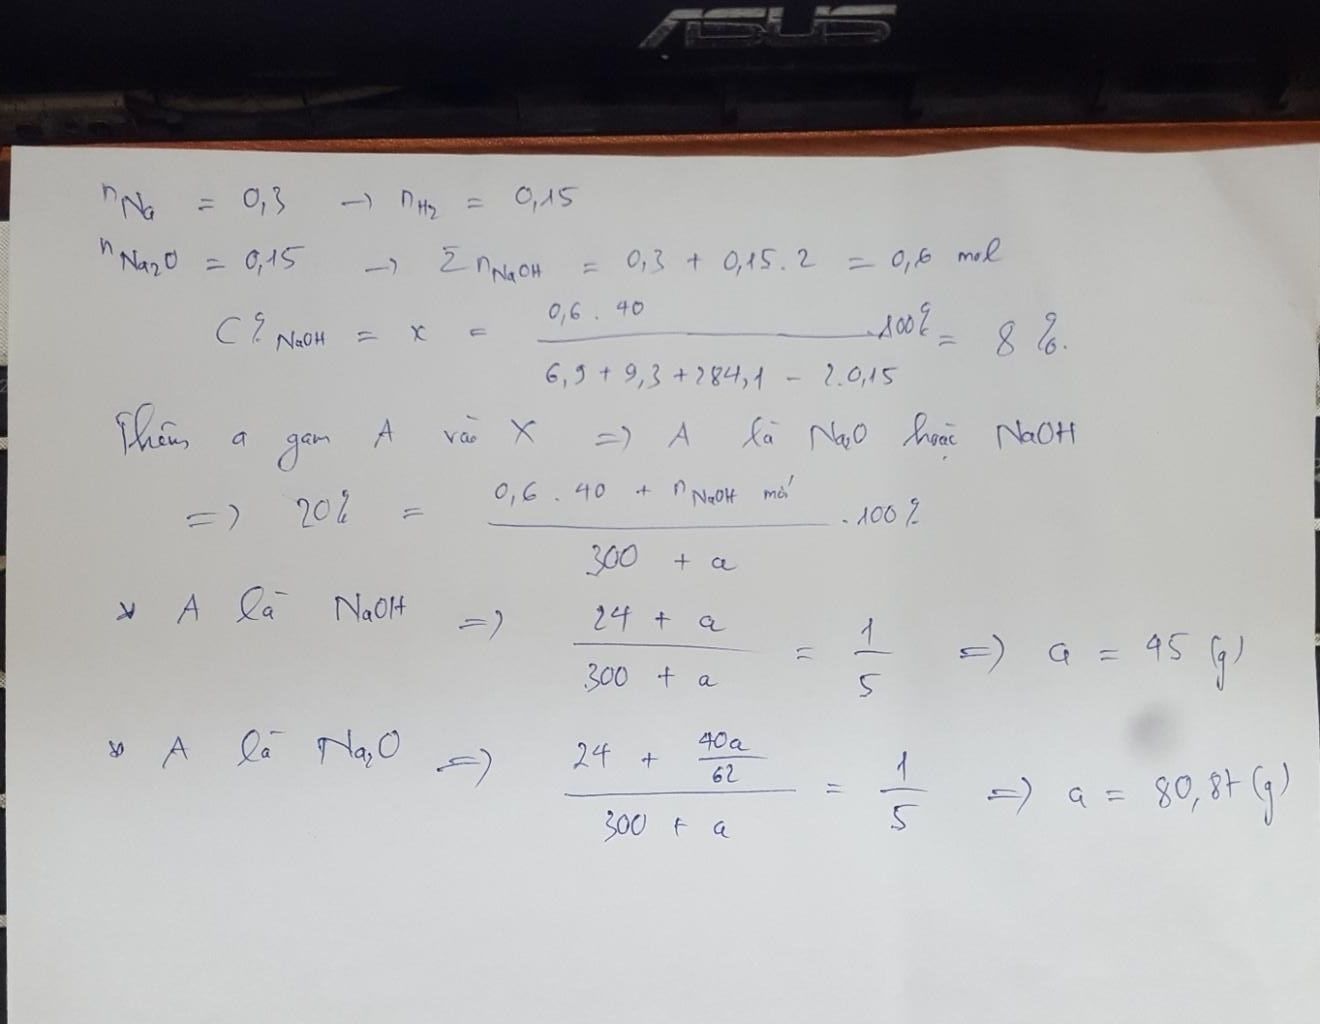 ASUS
nNa = 0,3 → nH2 = 0,15
nNa2O = 0,15 → Σ nNaOH = 0,3 + 0,15.2 = 0,6 mol
C%NaOH = x = (0,6 . 40)/(6,9 + 9,3 + 284,1 - 2.0,15) .100% = 8%.
Thêm a gam A vào X => A là Na2O hoặc NaOH
=> 20% = (0,6 . 40 + nNaOH mới)/(300 + a) . 100%
* A là NaOH => (24 + a)/(300 + a) = 1/5 => a = 45 (g)
* A là Na2O => (24 + 40a/62)/(300 + a) = 1/5 => a = 80,87 (g)